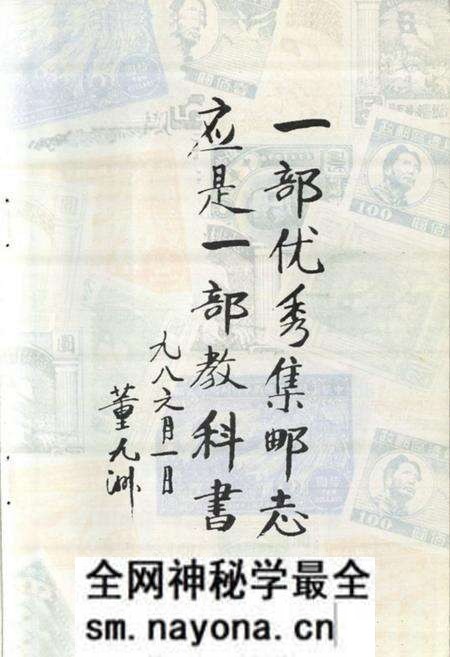 一部优秀集邮志
应是一部教科書
九八六月一日
董九洲
100
100
全网神秘学最全
sm.nayona.cn